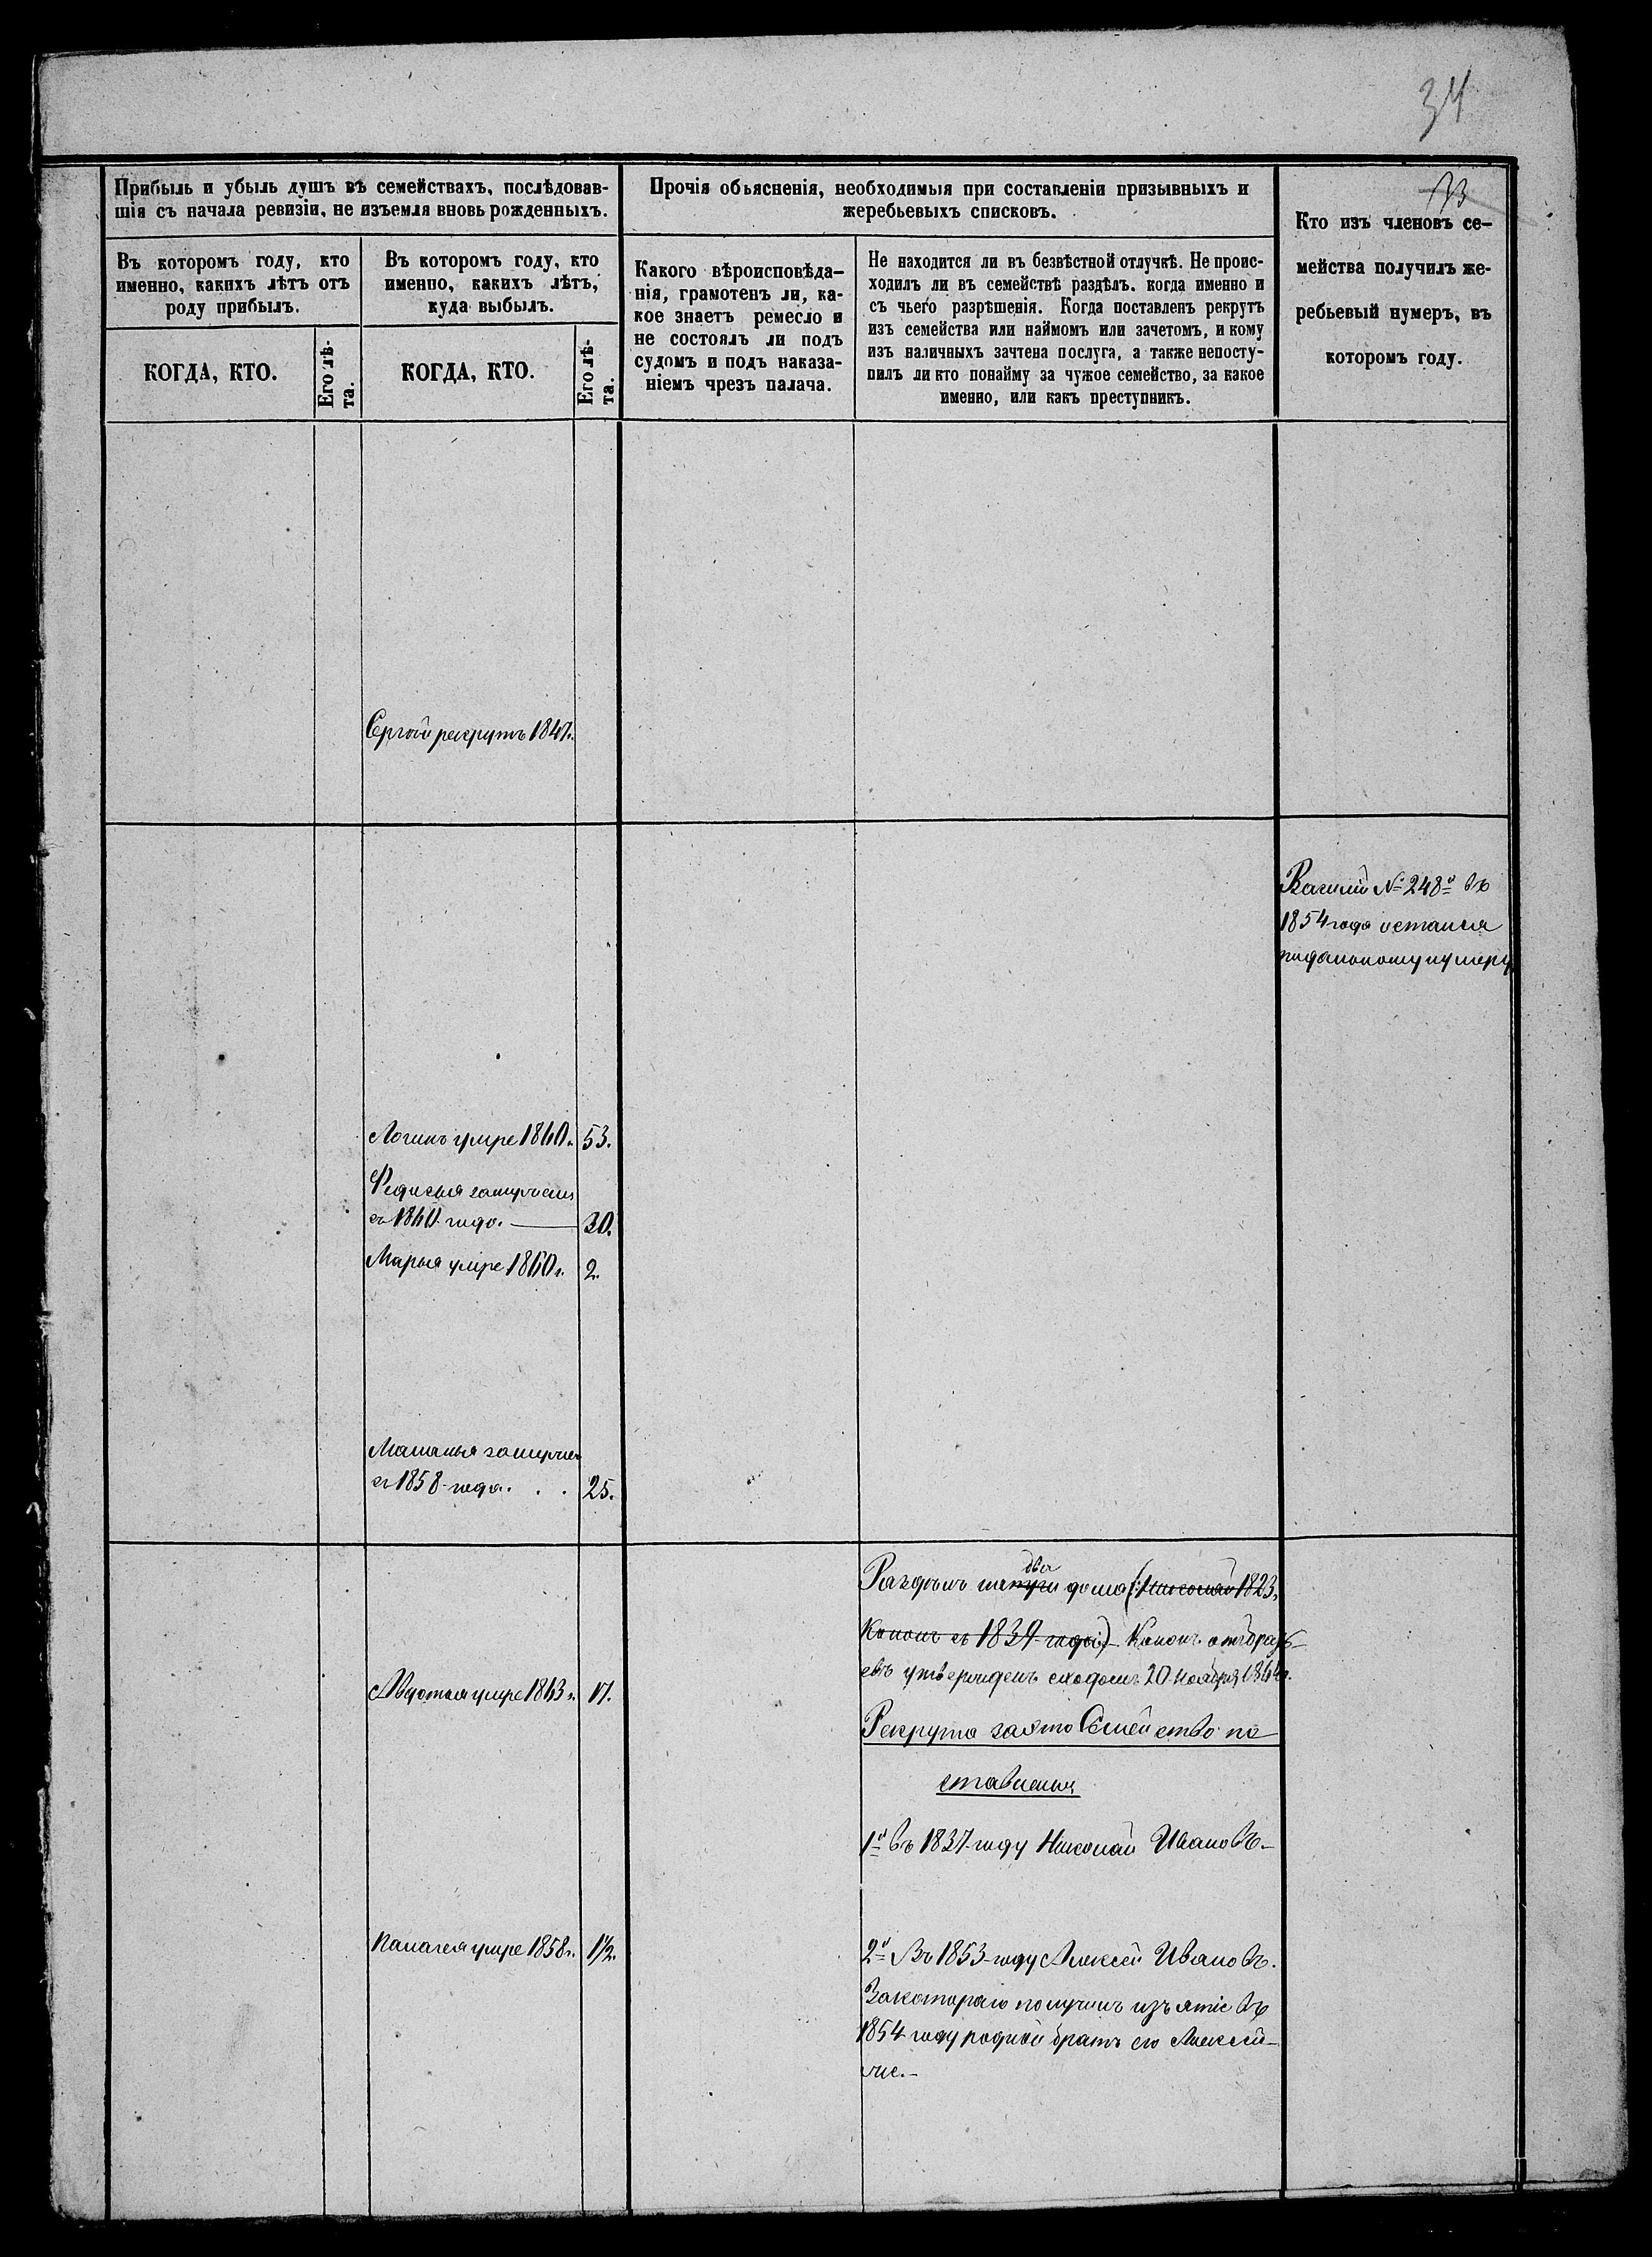 34
33
Прибыль и убыль душъ въ семействахъ, послѣдовав-
шія съ начала ревизіи, не изъемля вновь рожденныхъ.
Прочія обьясненія, необходимыя при составленіи призывныхъ и
жеребьевыхъ списковъ.
Кто изъ членовъ се-
мейства получилъ же-
ребьевый нумеръ, въ
которомъ году.
Въ которомъ году, кто
именно, какихъ лѣтъ отъ
роду прибылъ.
Въ которомъ году, кто
именно, какихъ лѣтъ,
куда выбылъ.
Какого вѣроисповѣда-
нія, грамотенъ ли, ка-
кое знаетъ ремесло и
не состоялъ ли подъ
судомъ и подъ наказа-
ніемъ чрезъ палача.
Не находится ли въ безвѣстной отлучкѣ. Не проис-
ходилъ ли въ семействѣ раздѣлъ. когда именно и
съ чьего разрѣшенія. Когда поставленъ рекрутъ
изъ семейства или наймомъ или зачетомъ, и кому
изъ наличныхъ зачтена послуга, а также непосту-
пилъ ли кто понайму за чужое семейство, за какое
именно, или какъ преступникъ.
КОГДА, КТО.
Его лѣ-
та.
КОГДА, КТО.
Его лѣ-
та.
Сергѣй рекрутъ 1847г.
№ 248й въ
1854 года остался
нумеру
Логинъ умре 1860г. 53.
Федосья замужемъ
съ 1860 года. 30.
Марья умре 1860г. 2.
Маланья замужем
съ 1858 года. . . 25.
Раздѣлъ на два дома (Николай 1823,
Кононъ съ 1839 года) Кононъ отъ
утвержденъ сходомъ 20 Ноября 1864г.
Авдотья умре 1863г. 17.
Рекрута за это Семейство по
ставлены
1й въ 1837 году Николай Ивановъ
Палагея умре 1858г. 1½.
2й Въ 1853 году Алексѣй Ивановъ.
Закотораго получилъ изъятіе въ
1854 году родной братъ его Алексѣй